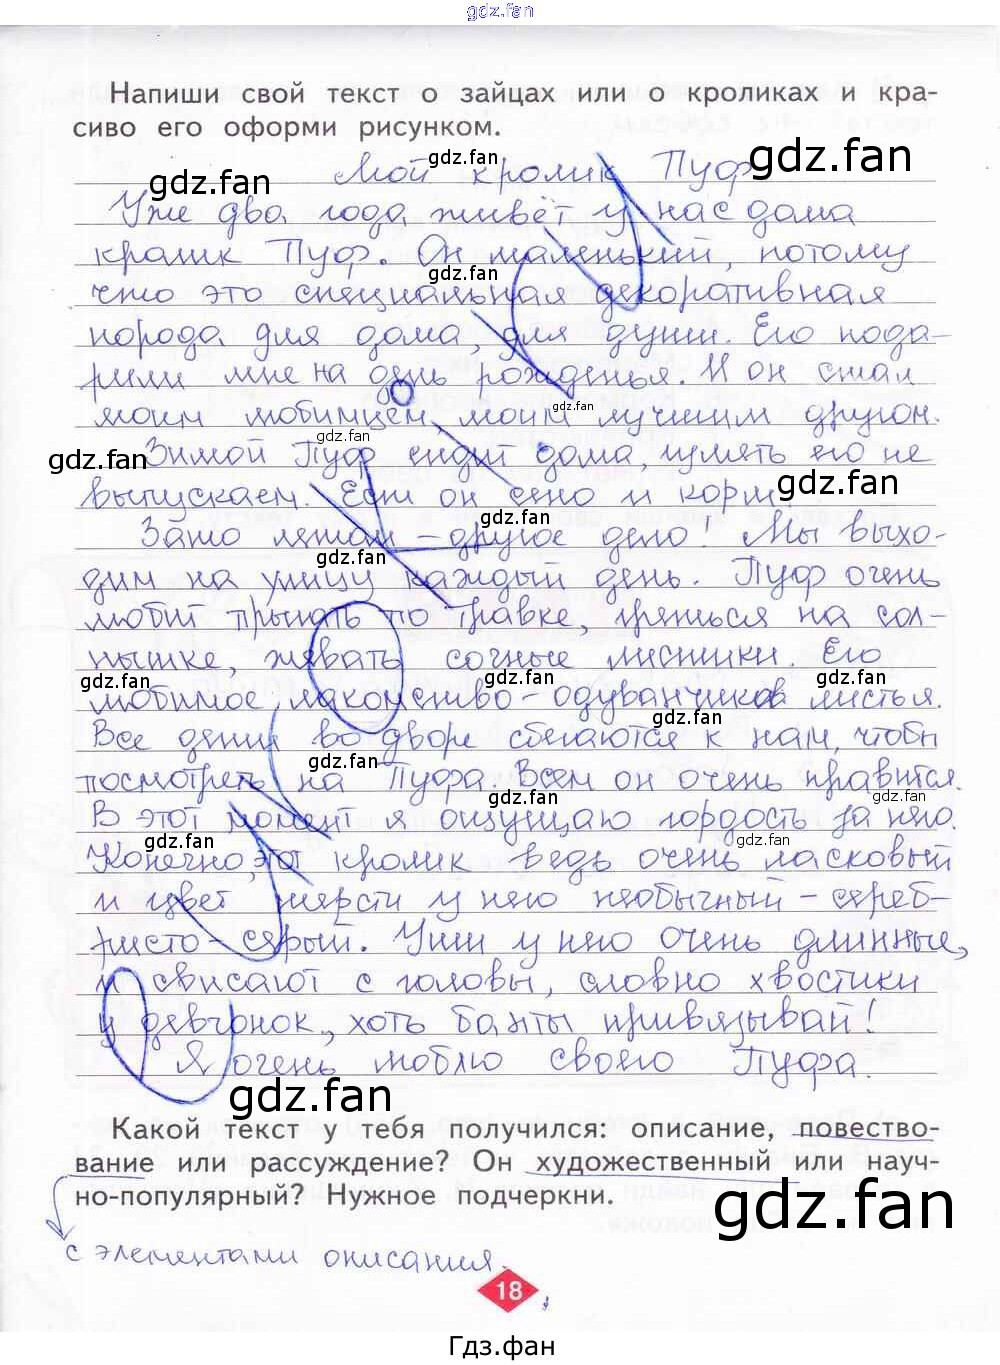 gdz.fan
Напиши свой текст о зайцах или о кроликах и кра-
сиво его оформи рисунком.
gdz.fan
gdz.fan
gdz.fan
Мой кролик Пуф
Уже два года живёт у нас дома
кролик Пуф. Он маленький, потому
gdz.fan
что это специальная декоративная
порода для дома, для души. Его пода-
рили мне на день рожденья. И он стал
gdz.fan
моим любимцем, моим лучшим другом.
gdz.fan
gdz.fan
Зимой Пуф сидит дома, гулять его не
gdz.fan
выпускаем. Ест он сено и корм.
gdz.fan
Зато летом – другое дело! Мы выхо-
gdz.fan
дим на улицу каждый день. Пуф очень
любит прыгать по травке, греться на сол-
нышке, жевать сочные листики. Его
gdz.fan
gdz.fan
любимое лакомство – одуванчиков листья.
gdz.fan
Все дети во дворе сбегаются к нам, чтобы
gdz.fan
посмотреть на Пуфа. Всем он очень нравится.
gdz.fan
gdz.fan
В этот момент я ощущаю гордость за него.
gdz.fan
gdz.fan
Конечно, этот кролик ведь очень ласковый
gdz.fan
и цвет шерсти у него необычный – сереб-
ристо-серый. Уши у него очень длинные,
и свисают с головы, словно хвостики
у девчонок, хоть банты привязывай!
Я очень люблю своего Пуфа.
gdz.fan
Какой текст у тебя получился: описание, повество-
вание или рассуждение? Он художественный или науч-
но-популярный? Нужное подчеркни.
gdz.fan
с элементами описания.
18
Гдз.фан